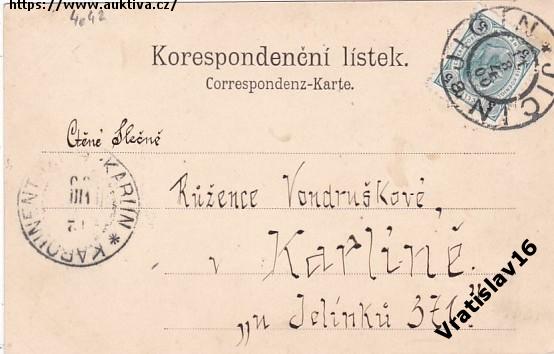 https://www.auktiva.cz/
4642
Korespondenční lístek.
Correspondenz-Karte.
JIČIN * JIČIN
Ctěné Slečně
KAROLINENT
KARLÍN
Růžence Vondruškové,
v Karlíně.
„u Jelínků 371."
Vratislav16